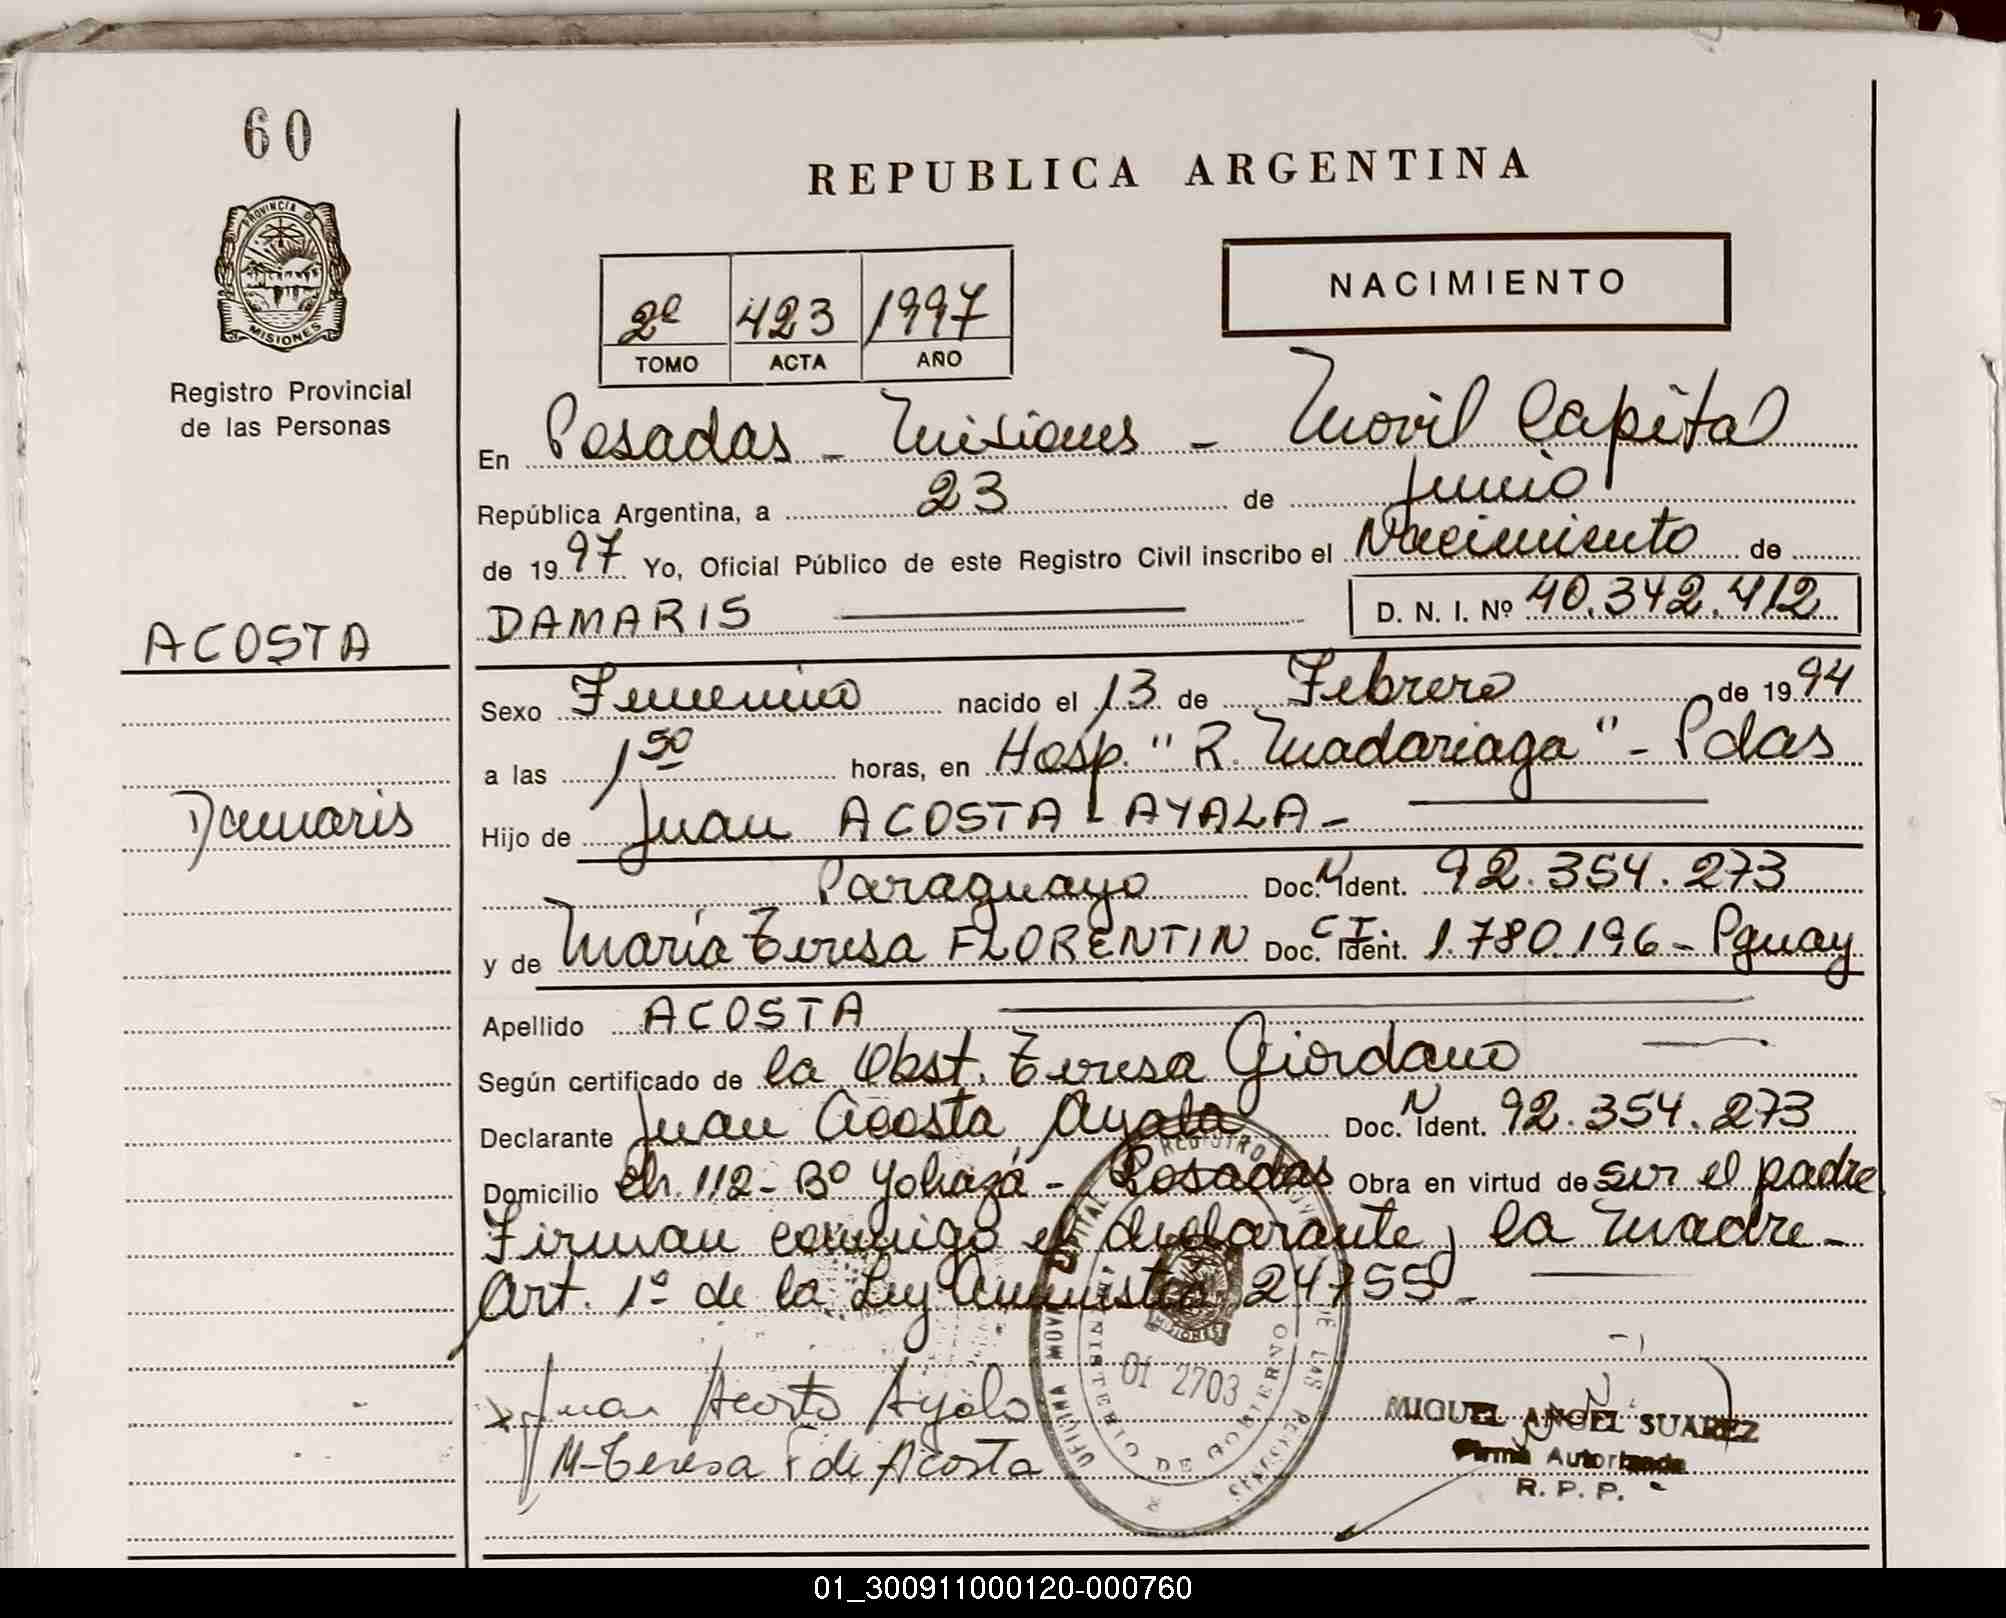 60
PROVINCIA DE
MISIONES
Registro Provincial
de las Personas
REPUBLICA ARGENTINA
NACIMIENTO
2º 423 1997
TOMO ACTA AÑO
En Posadas - Misiones - Movil Capital
República Argentina, a 23 de Junio
de 1997 Yo, Oficial Público de este Registro Civil inscribo el Nacimiento de
DAMARIS D. N. I. Nº 40.342.412
ACOSTA
Sexo Femenino nacido el 13 de Febrero de 1994
a las 1 50 horas, en Hosp. "R. Madariaga" - Pdas
Damaris
Hijo de Juan ACOSTA AYALA -
Paraguayo Doc. N Ident. 92.354.273
y de María Teresa FLORENTIN Doc. C.I. Ident. 1.780.196 - Pguay
Apellido ACOSTA
Según certificado de la Obst. Teresa Giordano
Declarante Juan Acosta Ayala Doc. N Ident. 92.354.273
Domicilio Ch. 112 - Bº Yohazá - Posadas Obra en virtud de ser el padre
Firman conmigo el declarante y la madre -
Art. 1º de la Ley Amnistía 24755 -
Juan Acosta Ayala
M-Teresa F de Acosta
OFICINA MOVIL CAPITAL
REGISTRO PROV. DE LAS PERSONAS
MINISTERIO DE GOBIERNO
MISIONES
01 2703
MIGUEL ANGEL SUAREZ
Firma Autorizada
R. P. P.
01_300911000120-000760